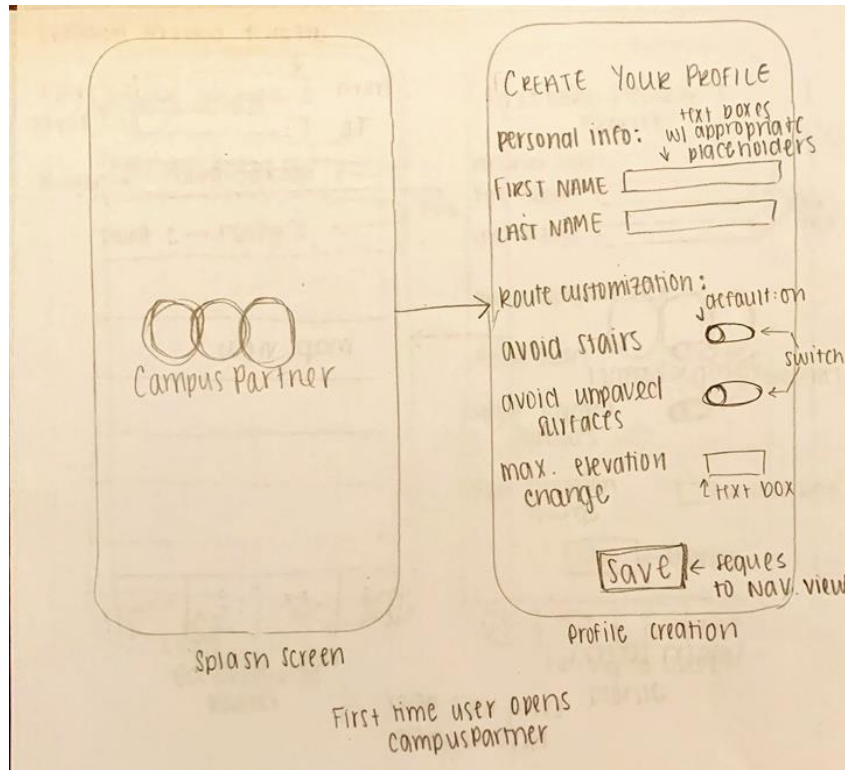 Campus Partner
Splash screen
CREATE YOUR PROFILE
personal info:
text boxes
w/ appropriate
placeholders
FIRST NAME
LAST NAME
Route customization:
default: on
avoid stairs
switch
avoid unpaved
surfaces
max. elevation
change
text box
save
segues
to Nav. view
Profile creation
First time user opens
CampusPartner